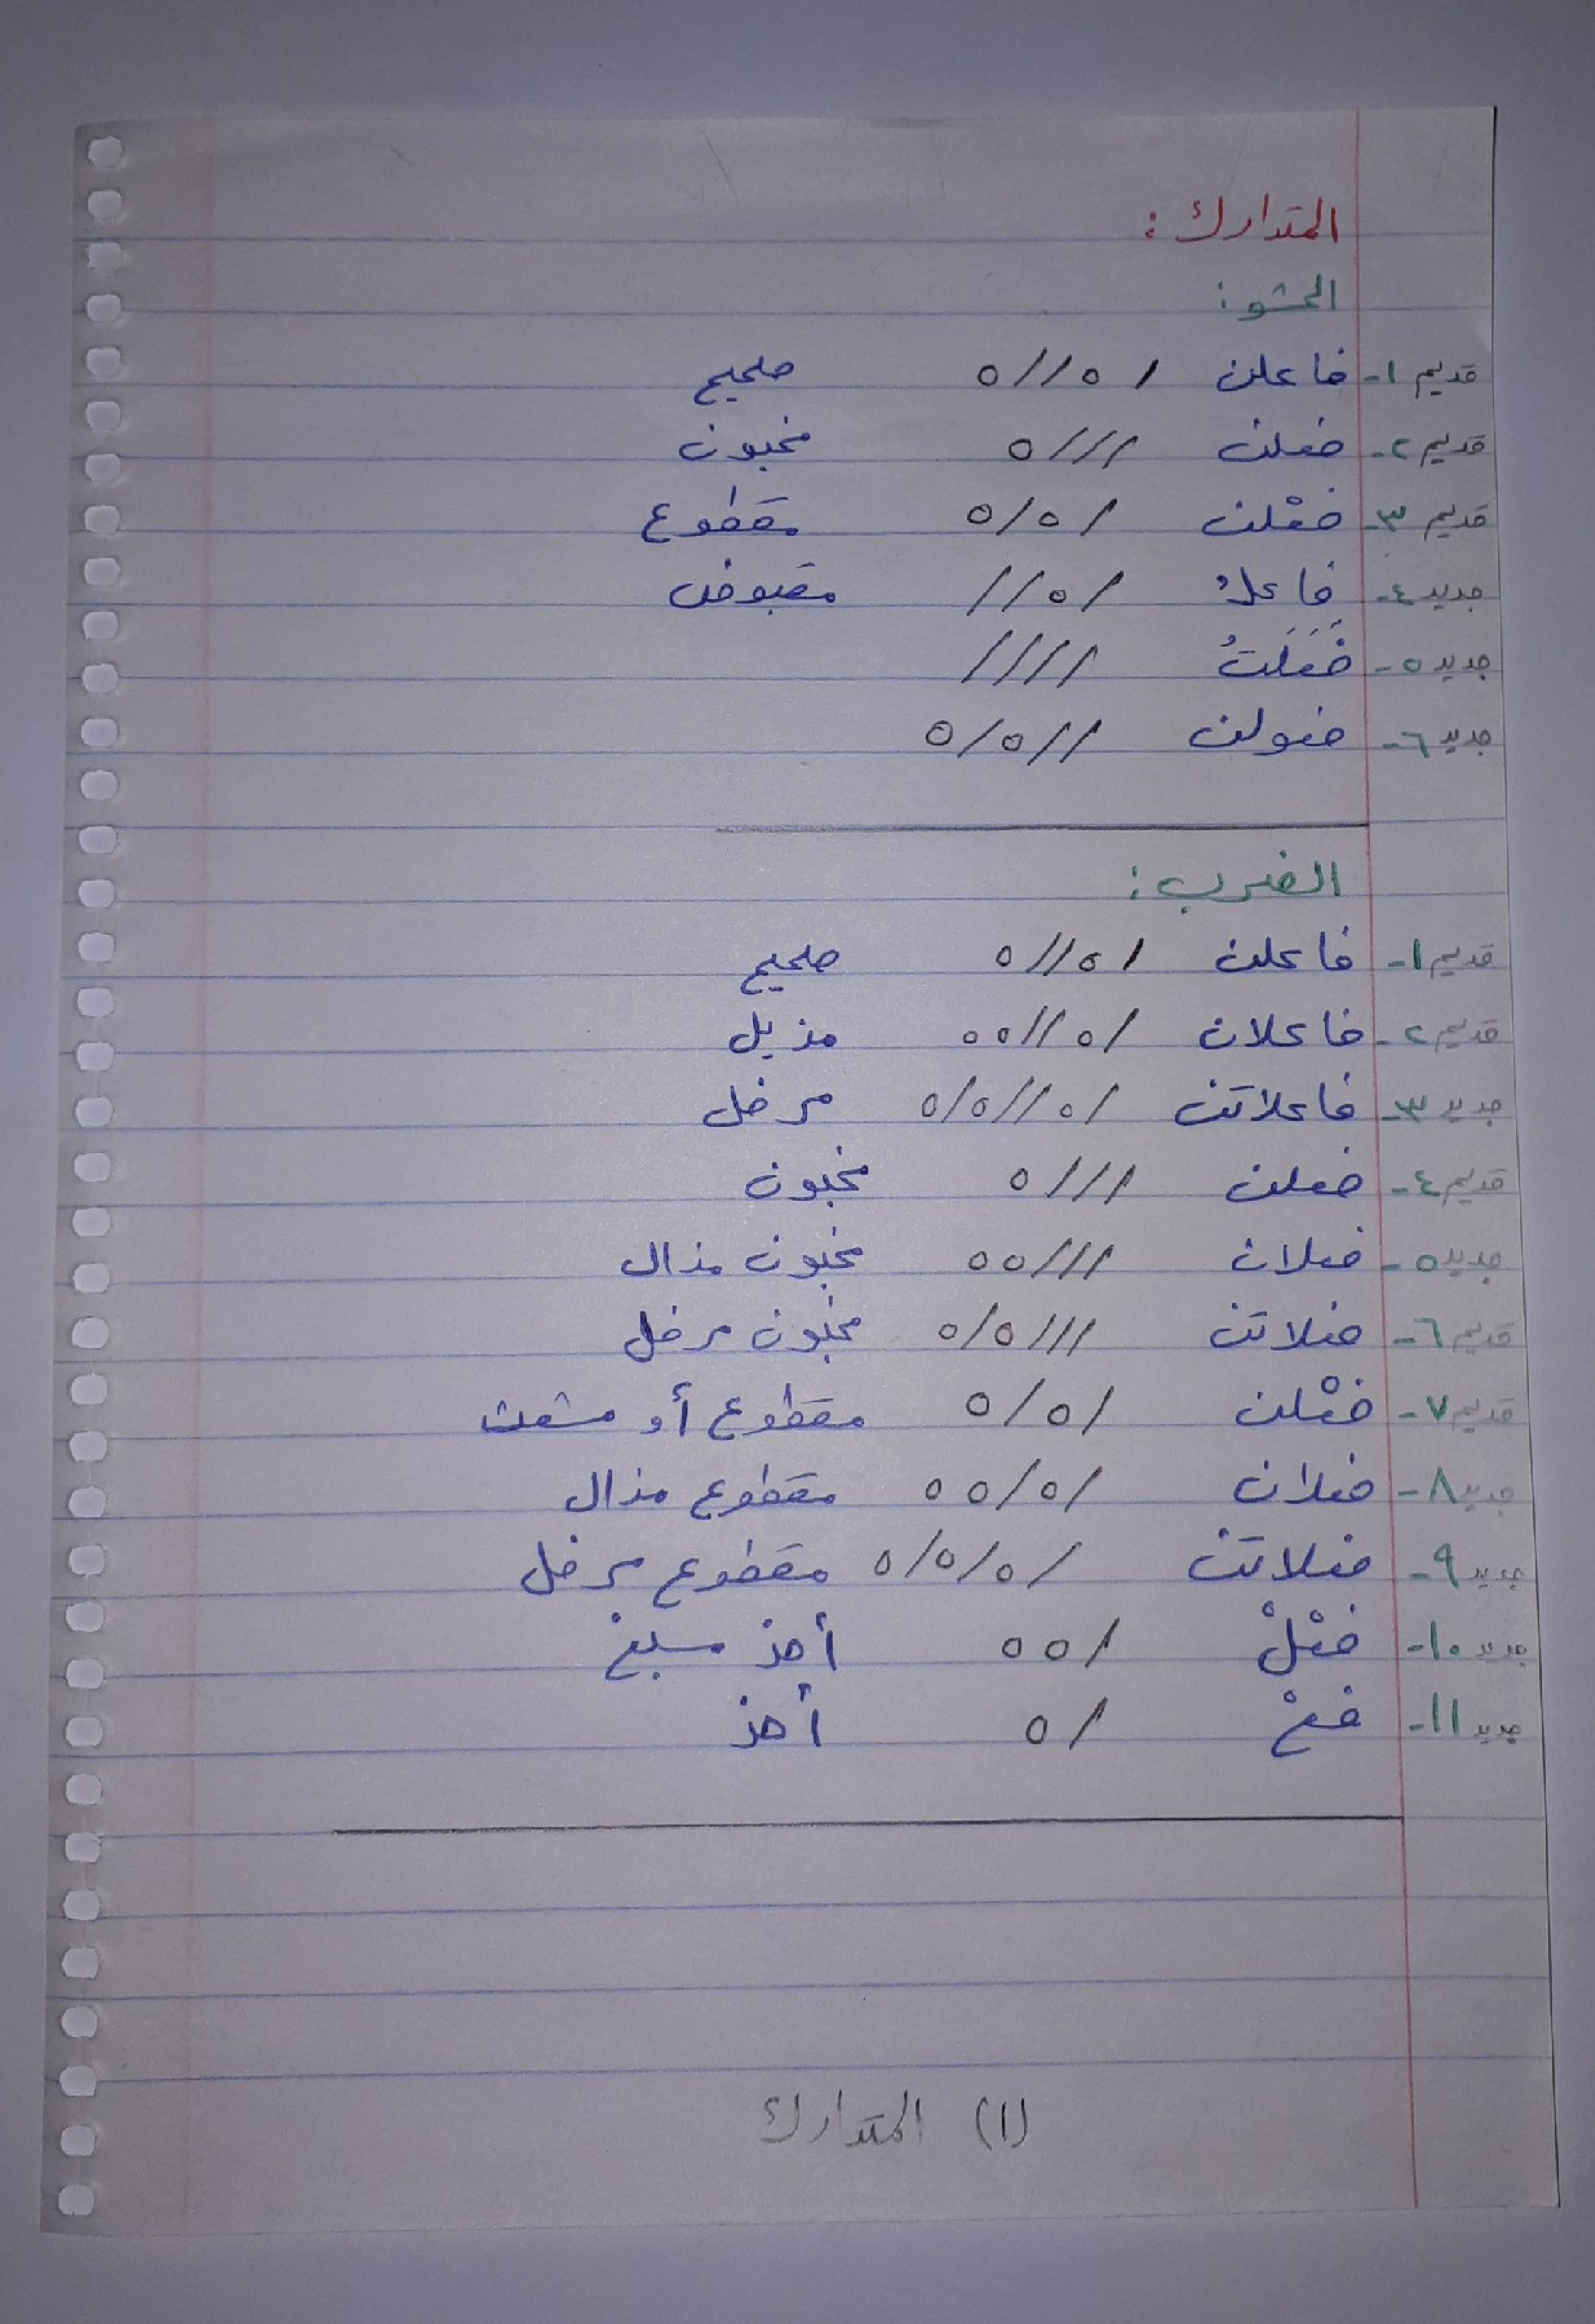 المتدارك :
الحشو :
قديم ١- فاعلن /٥//٥ صحيح
قديم ٢- فعلن ///٥ مخبون
قديم ٣- فعْلن /٥/٥ مقطوع
جديد ٤- فاعلُ /٥// مقبوض
جديد ٥- فَعَلَتُ ////
جديد ٦- فعولن //٥/٥
الضرب :
قديم ١- فاعلن /٥//٥ صحيح
قديم ٢- فاعلان /٥//٥٥ مذيل
جديد ٣- فاعلاتن /٥//٥/٥ مرفل
قديم ٤- فعلن ///٥ مخبون
جديد ٥- فعلان ///٥٥ مخبون مذال
قديم ٦- فعلاتن ///٥/٥ مخبون مرفل
قديم ٧- فعْلن /٥/٥ مقطوع أو مشعث
جديد ٨- فعلان /٥/٥٥ مقطوع مذال
جديد ٩- فعلاتن /٥/٥/٥ مقطوع مرفل
جديد ١٠- فعْلْ /٥٥ أحذ مسبغ
جديد ١١- فعْ /٥ أحذ
(١) المتدارك